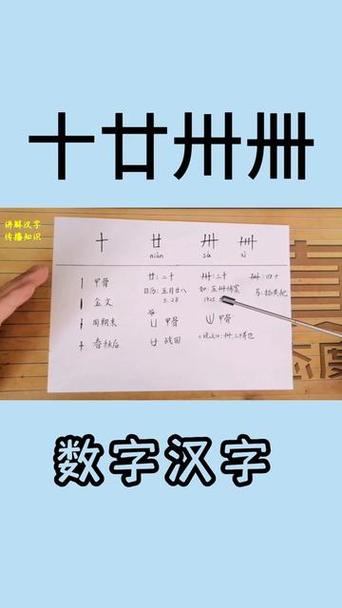 十廿卅卌
讲解汉字
传播知识
十 廿 卅 卌
niàn sà xì
甲骨 廿:二十 卅:三十 卌:四十
金文 日历:五月廿八 如:五卅惨案
5.28 1925.
周朝末 甲骨 甲骨
春秋后 战国
数字汉字